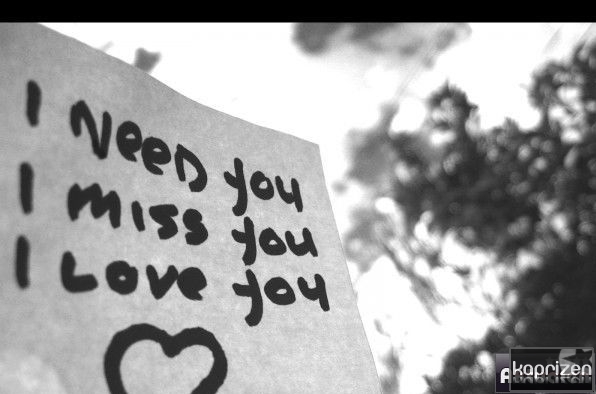 I NEED you
I MISS you
I LOVE you
kaprizen